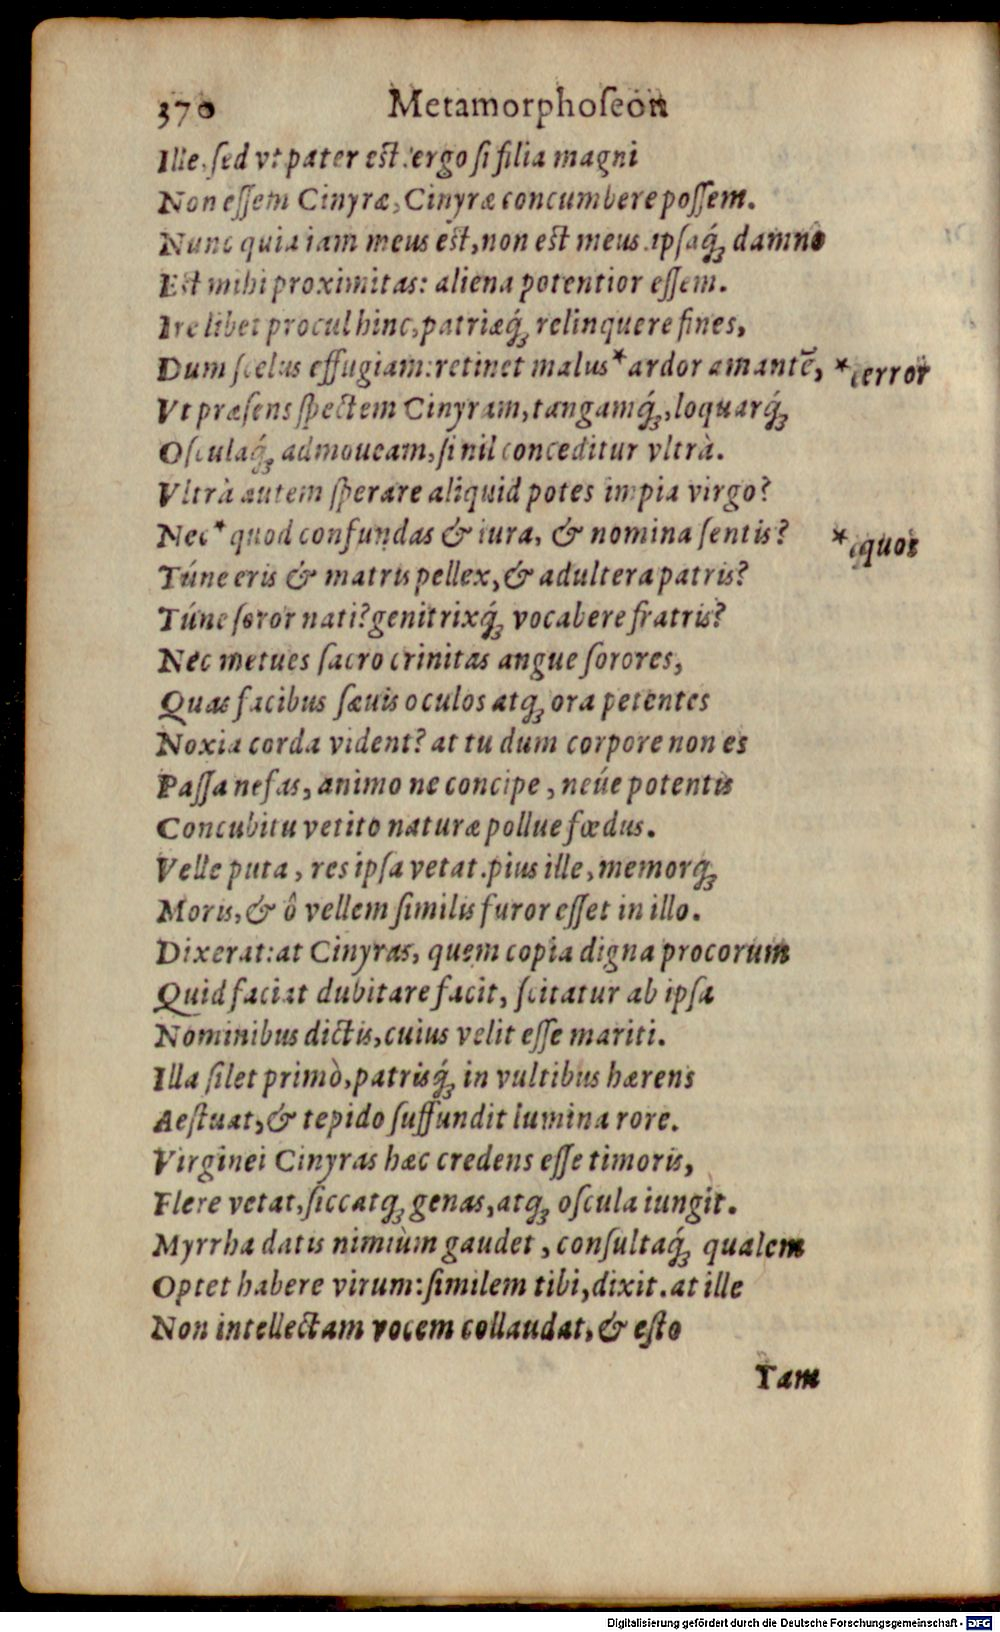 370 Metamorphoſeōn
Ille, ſed vt pater est. ergo ſi filia magni
Non eſſem Cinyræ, Cinyræ concumbere poſſem.
Nunc quia iam meus est, non est meus. ipſaq́; damno
Est mihi proximitas: aliena potentior eſſem.
Ire libet procul hinc, patriæq́; relinquere fines,
Dum ſcelus effugiam: retinet malus * ardor amantē, * error
Vt præſens ſpectem Cinyram, tangamq́;, loquarq́;
Oſculaq́; admoueam, ſi nil conceditur vltrà.
Vltrà autem ſperare aliquid potes impia virgo?
Nec * quod confundas & iura, & nomina ſentis? * quot
Túne eris & matris pellex, & adultera patris?
Túne ſoror nati? genitrixq́; vocabere fratris?
Nec metues ſacro crinitas angue ſorores,
Quas facibus ſæuis oculos atq; ora petentes
Noxia corda vident? at tu dum corpore non es
Paſſa nefas, animo ne concipe, neúe potentis
Concubitu vetito naturæ pollue fœdus.
Velle puta, res ipſa vetat. pius ille, memorq;
Moris, & ô vellem ſimilis furor eſſet in illo.
Dixerat: at Cinyras, quem copia digna procorum
Quid faciat dubitare facit, ſcitatur ab ipſa
Nominibus dictis, cuius velit eſſe mariti.
Illa ſilet primò, patrisq́; in vultibus hærens
Aeſtuat, & tepido ſuffundit lumina rore.
Virginei Cinyras hæc credens eſſe timoris,
Flere vetat, ſiccatq; genas, atq; oſcula iungit.
Myrrha datis nimiùm gaudet, conſultaq́; qualem
Optet habere virum: ſimilem tibi, dixit. at ille
Non intellectam vocem collaudat, & eſto
Tam
Digitalisierung gefördert durch die Deutsche Forschungsgemeinschaft - DFG